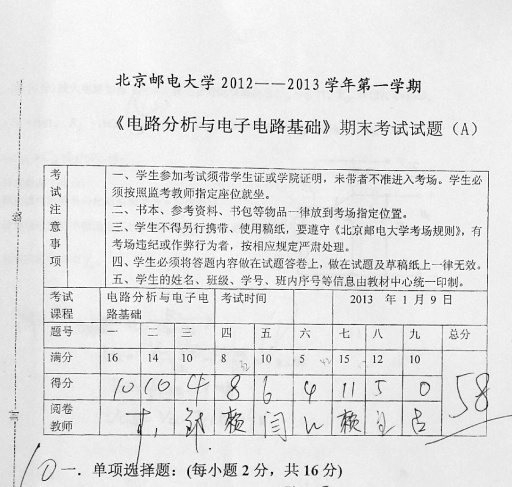 北京邮电大学 2012——2013 学年第一学期
《电路分析与电子电路基础》期末考试试题（A）
考试注意事项
一、学生参加考试须带学生证或学院证明，未带者不准进入考场。学生必
须按照监考教师指定座位就坐。
二、书本、参考资料、书包等物品一律放到考场指定位置。
三、学生不得另行携带、使用稿纸，要遵守《北京邮电大学考场规则》，有
考场违纪或作弊行为者，按相应规定严肃处理。
四、学生必须将答题内容做在试题答卷上，做在试题及草稿纸上一律无效。
五、学生的姓名、班级、学号、班内序号等信息由教材中心统一印制。
考试课程 电路分析与电子电路基础 考试时间 2013 年 1 月 9 日
题号 一 二 三 四 五 六 七 八 九 总分
满分 16 14 10 8 10 5 15 12 10
得分 10 10 4 8 6 4 11 5 0 58
阅卷教师 赖 闫 赖
10 一．单项选择题：(每小题 2 分，共 16 分)